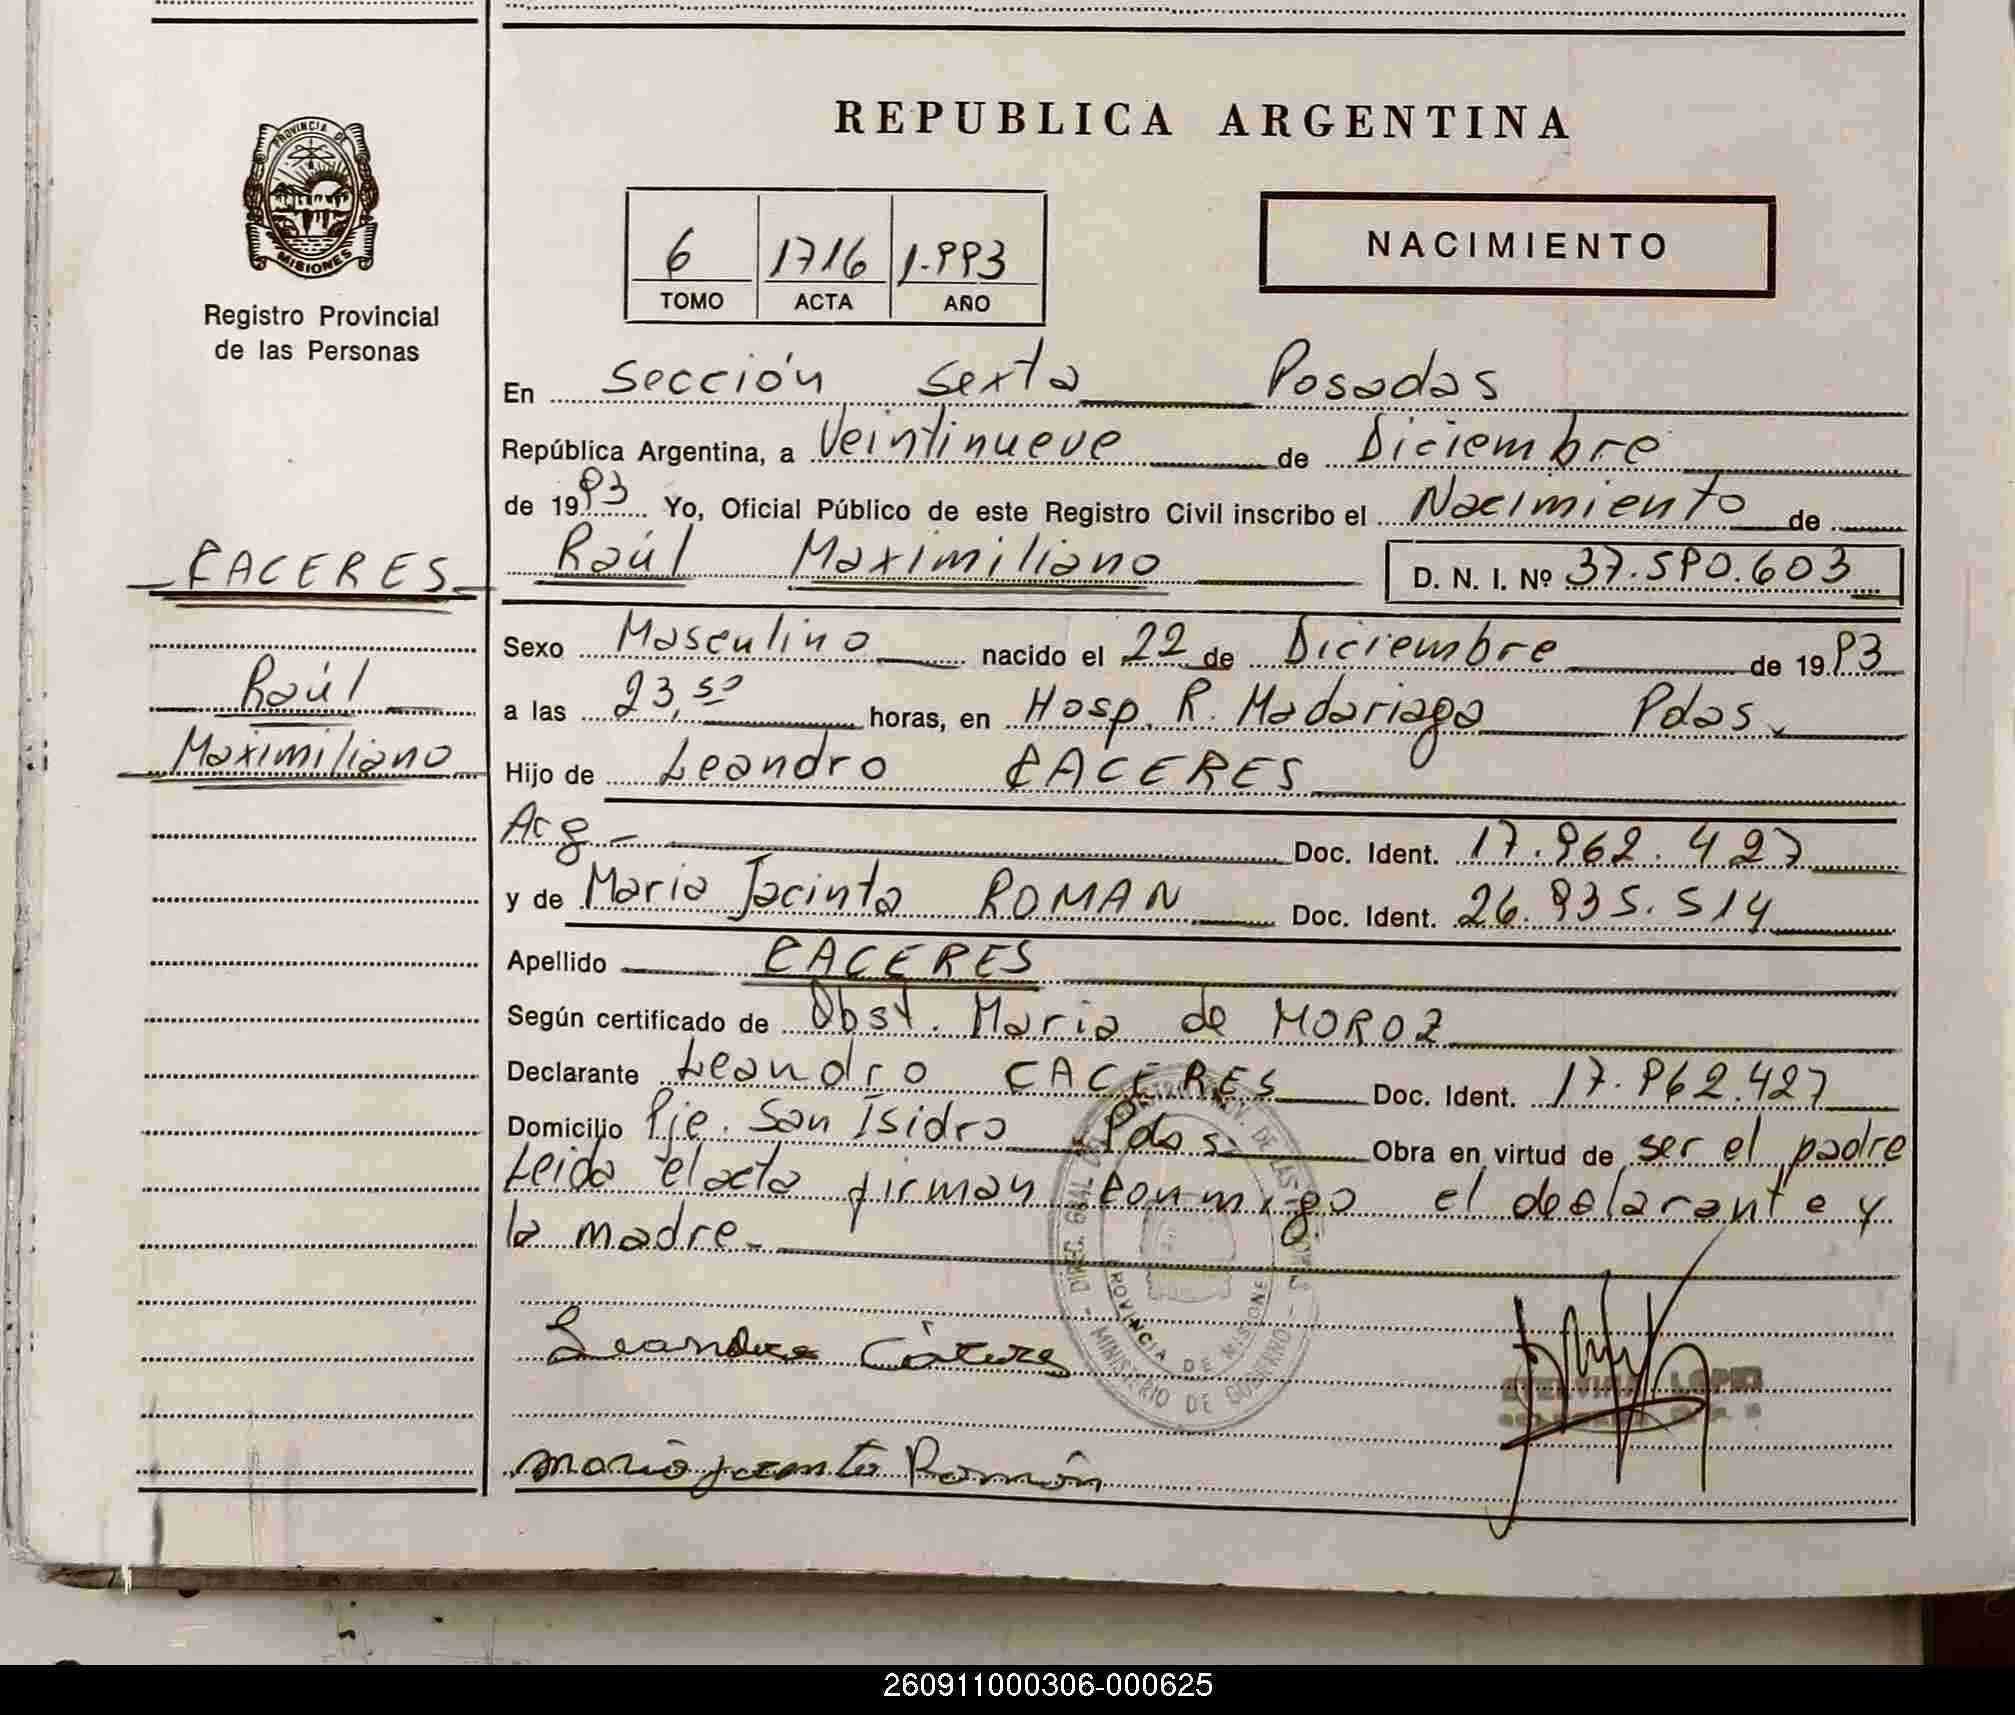 REPUBLICA ARGENTINA
PROVINCIA DE
MISIONES
Registro Provincial
de las Personas
6 1716 1.993
TOMO ACTA AÑO
NACIMIENTO
En Sección Sexta Posadas
República Argentina, a Veintinueve de Diciembre
de 1993 Yo, Oficial Público de este Registro Civil inscribo el Nacimiento de
CACERES
Raúl Maximiliano D. N. I. Nº 37.590.603
Sexo Masculino nacido el 22 de Diciembre de 1993
Raúl
a las 23,50 horas, en Hosp. R. Madariaga Pdas.
Maximiliano
Hijo de Leandro CACERES
Arg - Doc. Ident. 17.962.427
y de Maria Jacinta ROMAN Doc. Ident. 26.935.514
Apellido CACERES
Según certificado de Obst. Maria de MOROZ
Declarante Leandro CACERES Doc. Ident. 17.962.427
Domicilio Pje. San Isidro Pdas Obra en virtud de ser el padre
Leida el acta firman conmigo el declarante y
la madre.
PROVINCIA DE MISIONES
MINISTERIO DE GOBIERNO
Leandro Cáceres
LOPEZ
Maria Jacinta Román
260911000306-000625